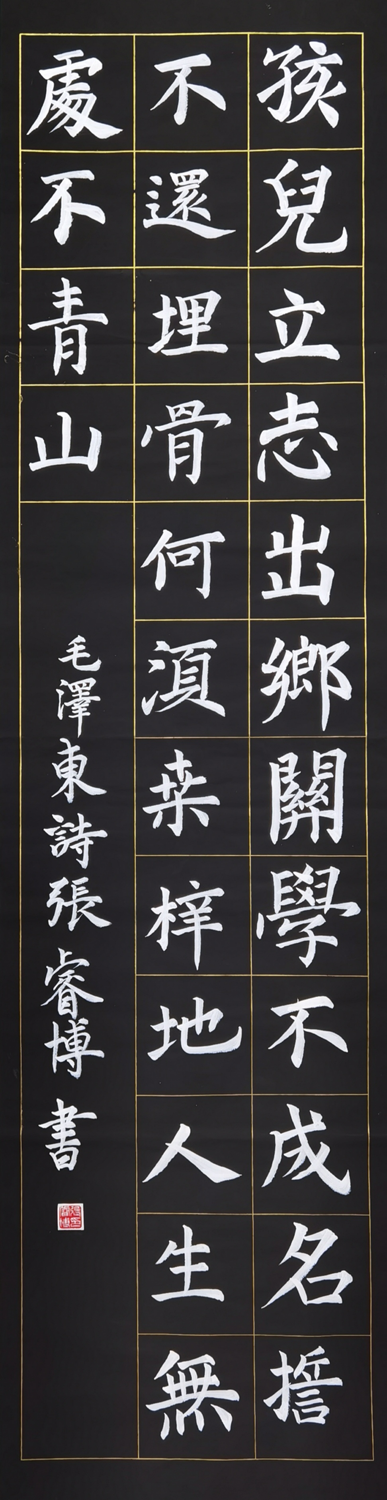 孩兒立志出鄉關學不成名誓
不還埋骨何須桒梓地人生無
處不青山
毛澤東詩張睿博書